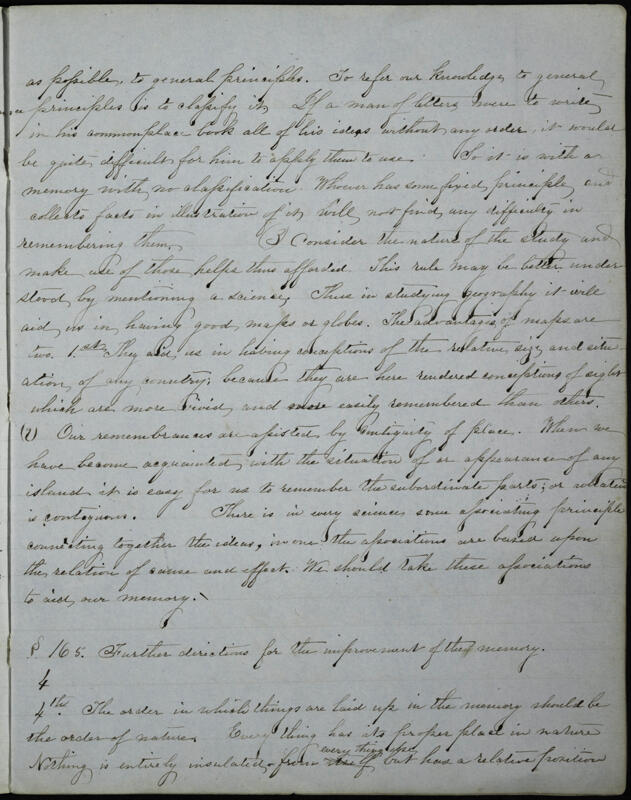 as possible, to general principles. To refer our knowledge to general
principles is to classify it. If a man of letters were to write
in his commonplace book all of his ideas without any order, it would
be quite difficult for him to apply them to use. So it is with a
memory with no classification. Whoever has some fixed principle, and
collects facts in illustration of it, will not find any difficulty in
remembering them. (3) Consider the nature of the study and
make use of those helps thus afforded. This rule may be better under
stood by mentioning a science. Thus in studying geography it will
aid us in having good maps or globes. The advantages of maps are
two. 1.st They aid us in having conceptions of the relative size and situ-
ation of any country; because they are here rendered conceptions of sight
which are more vivid and more easily remembered than others.
(2) Our remembrances are assisted by contiguity of place. When we
have become acquainted with the situation of or appearance of any
island it is easy for us to remember the subordinate parts; or whatever
is contiguous. There is in every science some associating principle
connecting together the ideas, in one the associations are based upon
the relation of cause and effect. We should take these associations
to aid our memory.
§ 165. Further directions for the improvement of the memory.
4
4th. The order in which things are laid up in the memory should be
the order of nature. Every thing has its proper place in nature
every thing else
Nothing is entirely insulated from itself but has a relative position